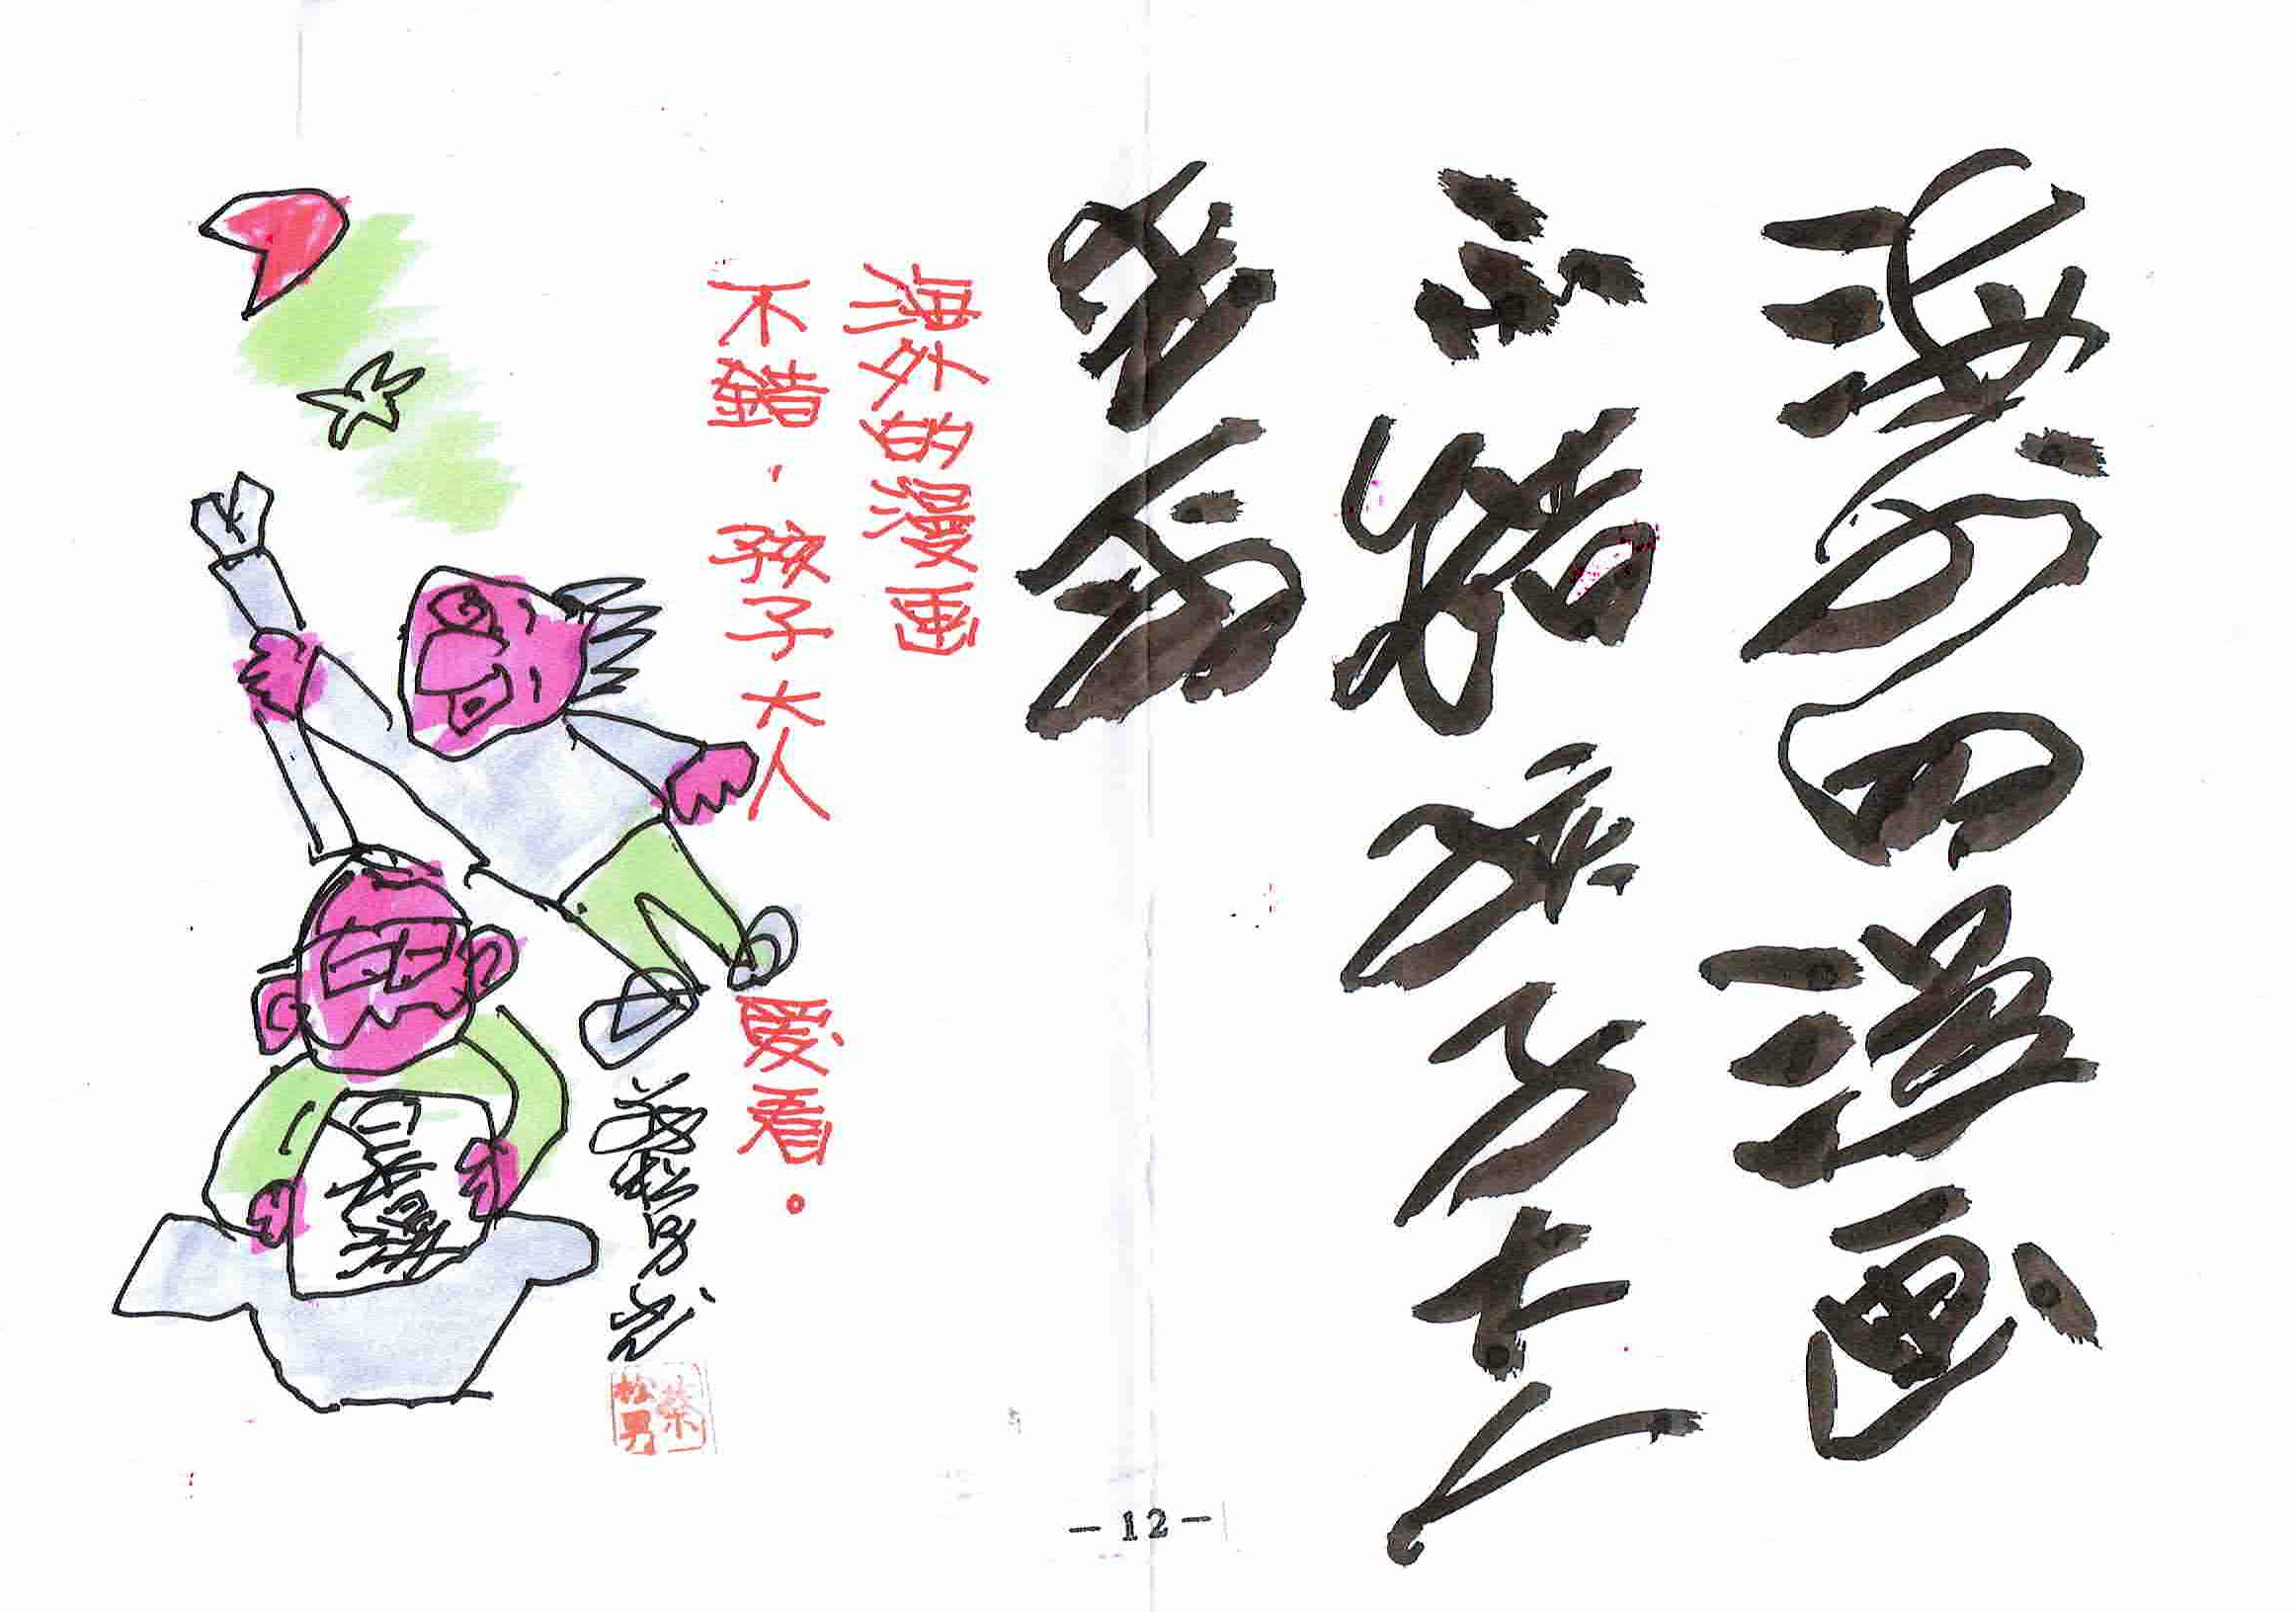 海外的漫画
不錯孩子大人
愛看
海外的漫画
不錯，孩子大人愛看。
蔡松男
-12-